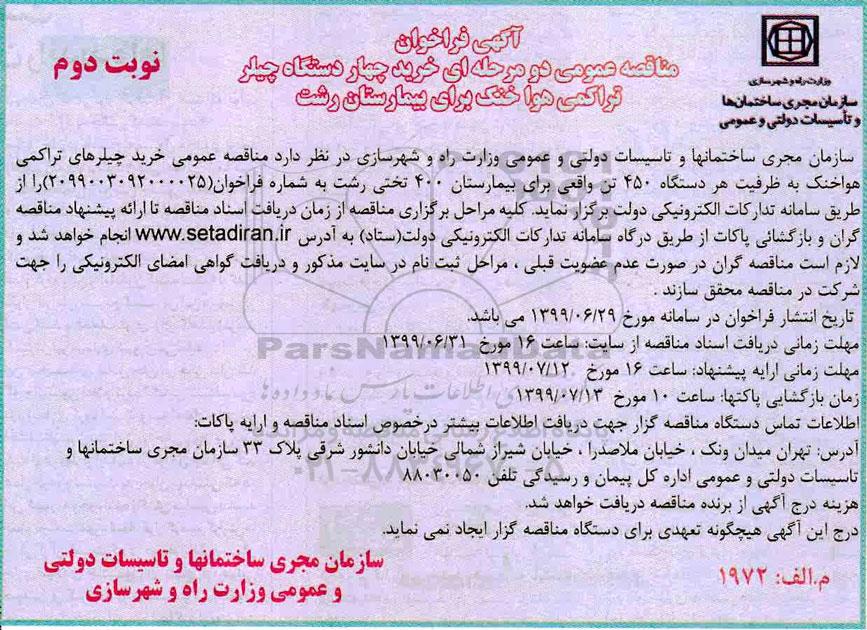 آگهی فراخوان
مناقصه عمومی دو مرحله ای خرید چهار دستگاه چیلر
تراکمی هوا خنک برای بیمارستان رشت
نوبت دوم
وزارت راه و شهرسازی
سازمان مجری ساختمان‌ها
و تأسیسات دولتی و عمومی
سازمان مجری ساختمانها و تاسیسات دولتی و عمومی وزارت راه و شهرسازی در نظر دارد مناقصه عمومی خرید چیلرهای تراکمی
هواخنک به ظرفیت هر دستگاه ۴۵۰ تن واقعی برای بیمارستان ۴۰۰ تختی رشت به شماره فراخوان(۲۰۹۹۰۰۳۰۹۲۰۰۰۰۲۵)را از
طریق سامانه تدارکات الکترونیکی دولت برگزار نماید. کلیه مراحل برگزاری مناقصه از زمان دریافت اسناد مناقصه تا ارائه پیشنهاد مناقصه
گران و بازگشائی پاکات از طریق درگاه سامانه تدارکات الکترونیکی دولت(ستاد) به آدرس www.setadiran.ir انجام خواهد شد و
لازم است مناقصه گران در صورت عدم عضویت قبلی ، مراحل ثبت نام در سایت مذکور و دریافت گواهی امضای الکترونیکی را جهت
شرکت در مناقصه محقق سازند .
تاریخ انتشار فراخوان در سامانه مورخ ۱۳۹۹/۰۶/۲۹ می باشد.
مهلت زمانی دریافت اسناد مناقصه از سایت: ساعت ۱۶ مورخ ۱۳۹۹/۰۶/۳۱
مهلت زمانی ارایه پیشنهاد: ساعت ۱۶ مورخ ۱۳۹۹/۰۷/۱۲
زمان بازگشایی پاکتها: ساعت ۱۰ مورخ ۱۳۹۹/۰۷/۱۳
اطلاعات تماس دستگاه مناقصه گزار جهت دریافت اطلاعات بیشتر درخصوص اسناد مناقصه و ارایه پاکات:
آدرس: تهران میدان ونک ، خیابان ملاصدرا ، خیابان شیراز شمالی خیابان دانشور شرقی پلاک ۳۳ سازمان مجری ساختمانها و
تاسیسات دولتی و عمومی اداره کل پیمان و رسیدگی تلفن ۸۸۰۳۰۰۵۰
هزینه درج آگهی از برنده مناقصه دریافت خواهد شد.
درج این آگهی هیچگونه تعهدی برای دستگاه مناقصه گزار ایجاد نمی نماید.
سازمان مجری ساختمانها و تاسیسات دولتی
و عمومی وزارت راه و شهرسازی
م.الف: ۱۹۷۲
ParsNamadData